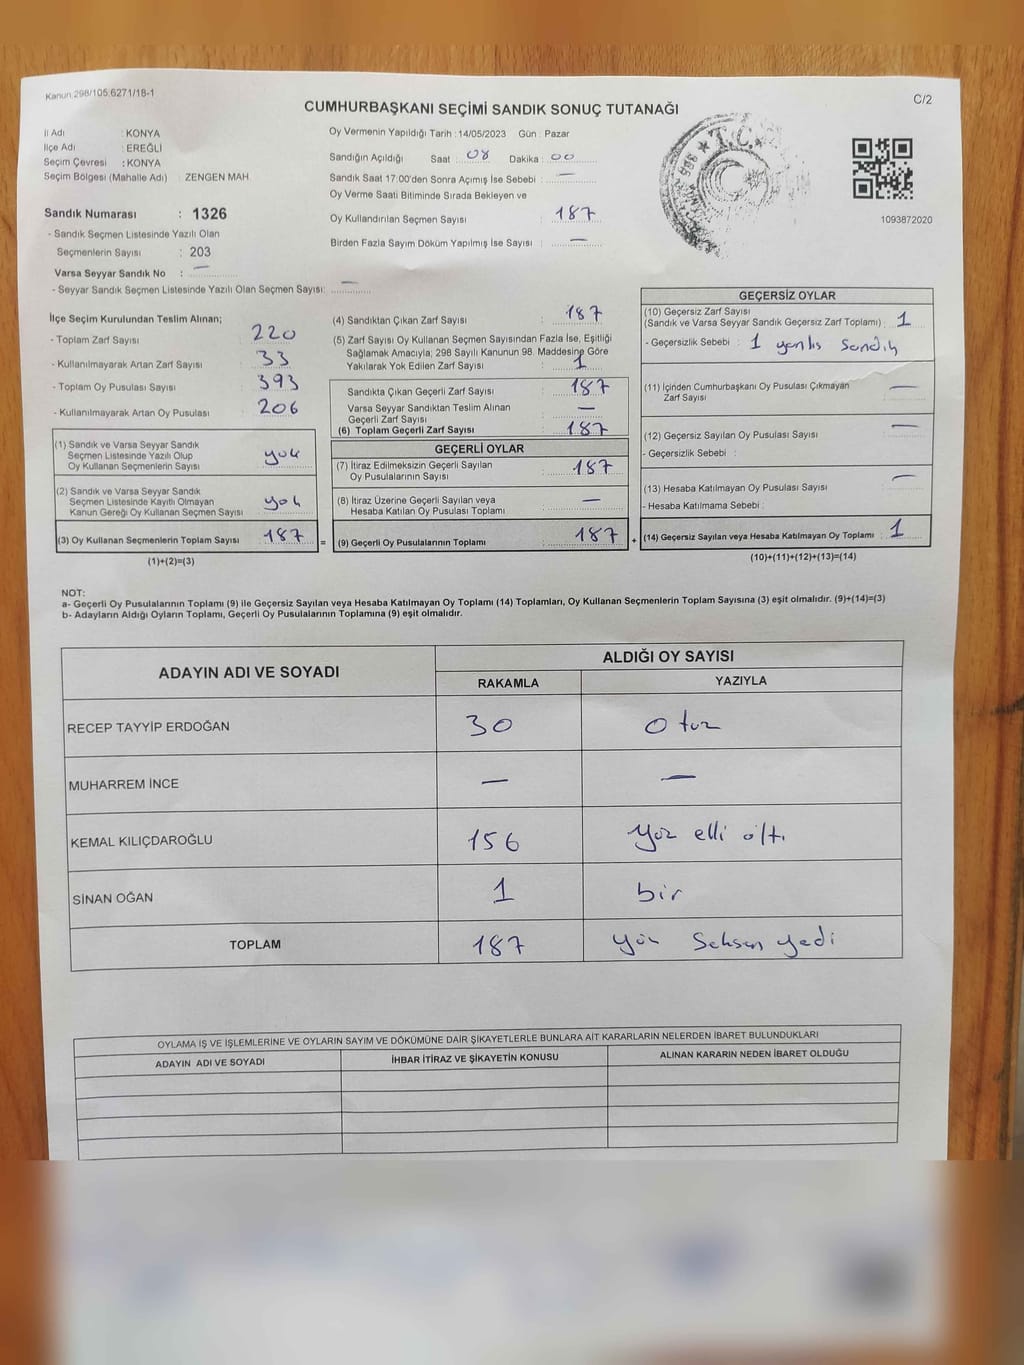 Kanun 298/105.6271/18-1
C/2
CUMHURBAŞKANI SEÇİMİ SANDIK SONUÇ TUTANAĞI
İl Adı : KONYA
İlçe Adı : EREĞLİ
Seçim Çevresi : KONYA
Seçim Bölgesi (Mahalle Adı) : ZENGEN MAH.
Sandık Numarası : 1326
- Sandık Seçmen Listesinde Yazılı Olan
Seçmenlerin Sayısı : 203
Varsa Seyyar Sandık No : —
- Seyyar Sandık Seçmen Listesinde Yazılı Olan Seçmen Sayısı: —
Oy Vermenin Yapıldığı Tarih : 14/05/2023 Gün : Pazar
Sandığın Açıldığı Saat : 08 Dakika : 00
Sandık Saat 17:00'den Sonra Açımış İse Sebebi : —
Oy Verme Saati Bitiminde Sırada Bekleyen ve
Oy Kullandırılan Seçmen Sayısı : 187
Birden Fazla Sayım Döküm Yapılmış İse Sayısı : —
T.C.
1093872020
İlçe Seçim Kurulundan Teslim Alınan;
- Toplam Zarf Sayısı : 220
- Kullanılmayarak Artan Zarf Sayısı : 33
- Toplam Oy Pusulası Sayısı : 393
- Kullanılmayarak Artan Oy Pusulası : 206
(1) Sandık ve Varsa Seyyar Sandık
Seçmen Listesinde Yazılı Olup
Oy Kullanan Seçmenlerin Sayısı : yok
(2) Sandık ve Varsa Seyyar Sandık
Seçmen Listesinde Kayıtlı Olmayan
Kanun Gereği Oy Kullanan Seçmen Sayısı : yok
(3) Oy Kullanan Seçmenlerin Toplam Sayısı : 187
(1)+(2)=(3)
=
(4) Sandıktan Çıkan Zarf Sayısı : 187
(5) Zarf Sayısı Oy Kullanan Seçmen Sayısından Fazla İse, Eşitliği
Sağlamak Amacıyla; 298 Sayılı Kanunun 98. Maddesine Göre
Yakılarak Yok Edilen Zarf Sayısı : 1
Sandıkta Çıkan Geçerli Zarf Sayısı : 187
Varsa Seyyar Sandıktan Teslim Alınan
Geçerli Zarf Sayısı : —
(6) Toplam Geçerli Zarf Sayısı : 187
GEÇERLİ OYLAR
(7) İtiraz Edilmeksizin Geçerli Sayılan
Oy Pusulalarının Sayısı : 187
(8) İtiraz Üzerine Geçerli Sayılan veya
Hesaba Katılan Oy Pusulası Toplamı : —
(9) Geçerli Oy Pusulalarının Toplamı : 187
+
GEÇERSİZ OYLAR
(10) Geçersiz Zarf Sayısı
(Sandık ve Varsa Seyyar Sandık Geçersiz Zarf Toplamı) : 1
- Geçersizlik Sebebi : 1 yanlıs Sandık
(11) İçinden Cumhurbaşkanı Oy Pusulası Çıkmayan
Zarf Sayısı : —
(12) Geçersiz Sayılan Oy Pusulası Sayısı : —
- Geçersizlik Sebebi :
(13) Hesaba Katılmayan Oy Pusulası Sayısı : —
- Hesaba Katılmama Sebebi :
(14) Geçersiz Sayılan veya Hesaba Katılmayan Oy Toplamı : 1
(10)+(11)+(12)+(13)=(14)
NOT:
a- Geçerli Oy Pusulalarının Toplamı (9) ile Geçersiz Sayılan veya Hesaba Katılmayan Oy Toplamı (14) Toplamları, Oy Kullanan Seçmenlerin Toplam Sayısına (3) eşit olmalıdır. (9)+(14)=(3)
b- Adayların Aldığı Oyların Toplamı, Geçerli Oy Pusulalarının Toplamına (9) eşit olmalıdır.
ADAYIN ADI VE SOYADI ALDIĞI OY SAYISI
RAKAMLA YAZIYLA
RECEP TAYYİP ERDOĞAN 30 Otuz
MUHARREM İNCE — —
KEMAL KILIÇDAROĞLU 156 Yüz elli altı
SİNAN OĞAN 1 bir
TOPLAM 187 yüz Seksen yedi
OYLAMA İŞ VE İŞLEMLERİNE VE OYLARIN SAYIM VE DÖKÜMÜNE DAİR ŞİKAYETLERLE BUNLARA AİT KARARLARIN NELERDEN İBARET BULUNDUKLARI
ADAYIN ADI VE SOYADI İHBAR İTİRAZ VE ŞİKAYETİN KONUSU ALINAN KARARIN NEDEN İBARET OLDUĞU